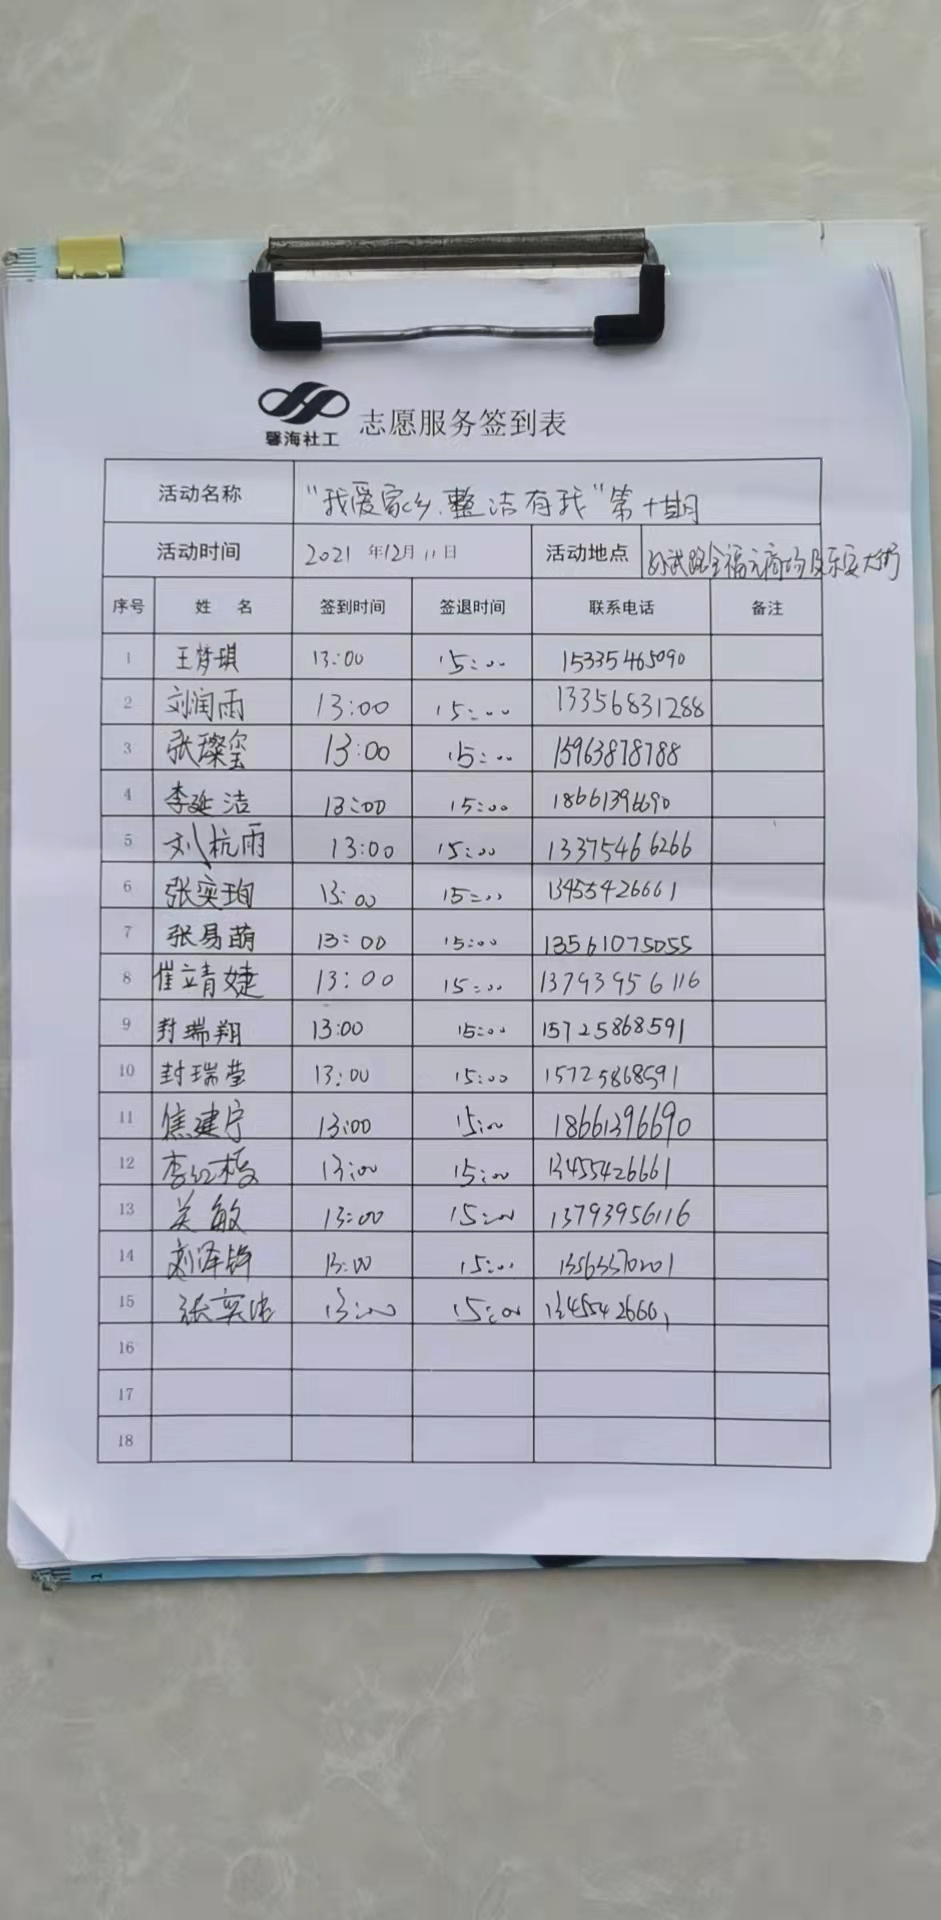 馨海社工 志愿服务签到表
活动名称 "我爱家乡.整洁有我"第十期
活动时间 2021 年12月11日 活动地点 孙武路全福元商场及乐安大街
序号 姓 名 签到时间 签退时间 联系电话 备注
1 王梦琪 13:00 15:00 15335465090
2 刘润雨 13:00 15:00 13356831288
3 张璨玺 13:00 15:00 15963878788
4 李延洁 13:00 15:00 18661396690
5 刘杭雨 13:00 15:00 13375466266
6 张奕珣 13:00 15:00 13455426661
7 张易萌 13:00 15:00 13561075055
8 崔立青婕 13:00 15:00 13793956116
9 封瑞翔 13:00 15:00 15725868591
10 封瑞莹 13:00 15:00 15725868591
11 焦建宁 13:00 15:00 18661396690
12 李红梅 13:00 15:00 13455426661
13 关敏 13:00 15:00 13793956116
14 刘泽锋 13:00 15:00
15 张奕 13:00 15:00 13455426661
16
17
18